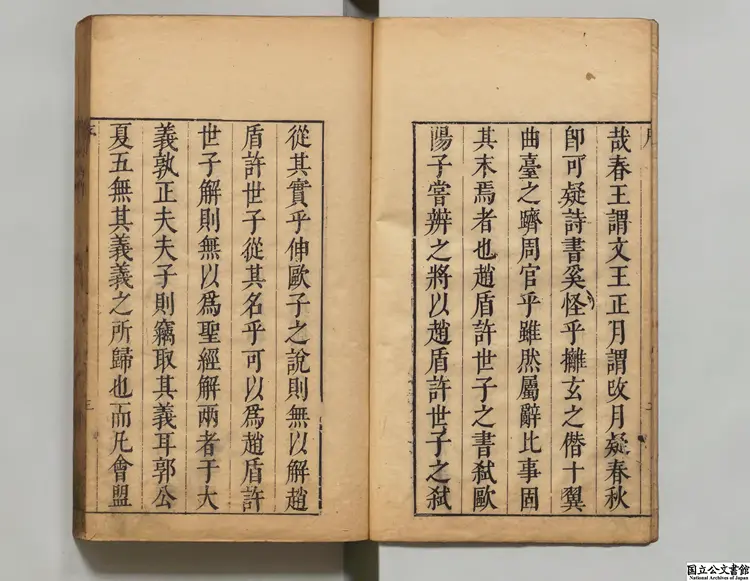 哉春王謂文王正月謂攺月疑春秋
卽可疑詩書奚怪乎擬玄之僭十翼
曲臺之躋周官乎雖然屬辭比事固
其末焉者也趙盾許世子之書弑歐
陽子嘗辨之將以趙盾許世子之弑
從其實乎伸歐子之說則無以解趙
盾許世子從其名乎可以爲趙盾許
世子解則無以爲聖經解兩者于大
義孰正夫夫子則竊取其義耳郭公
夏五無其義義之所歸也而凡會盟
三
国立公文書館
National Archives of Japan